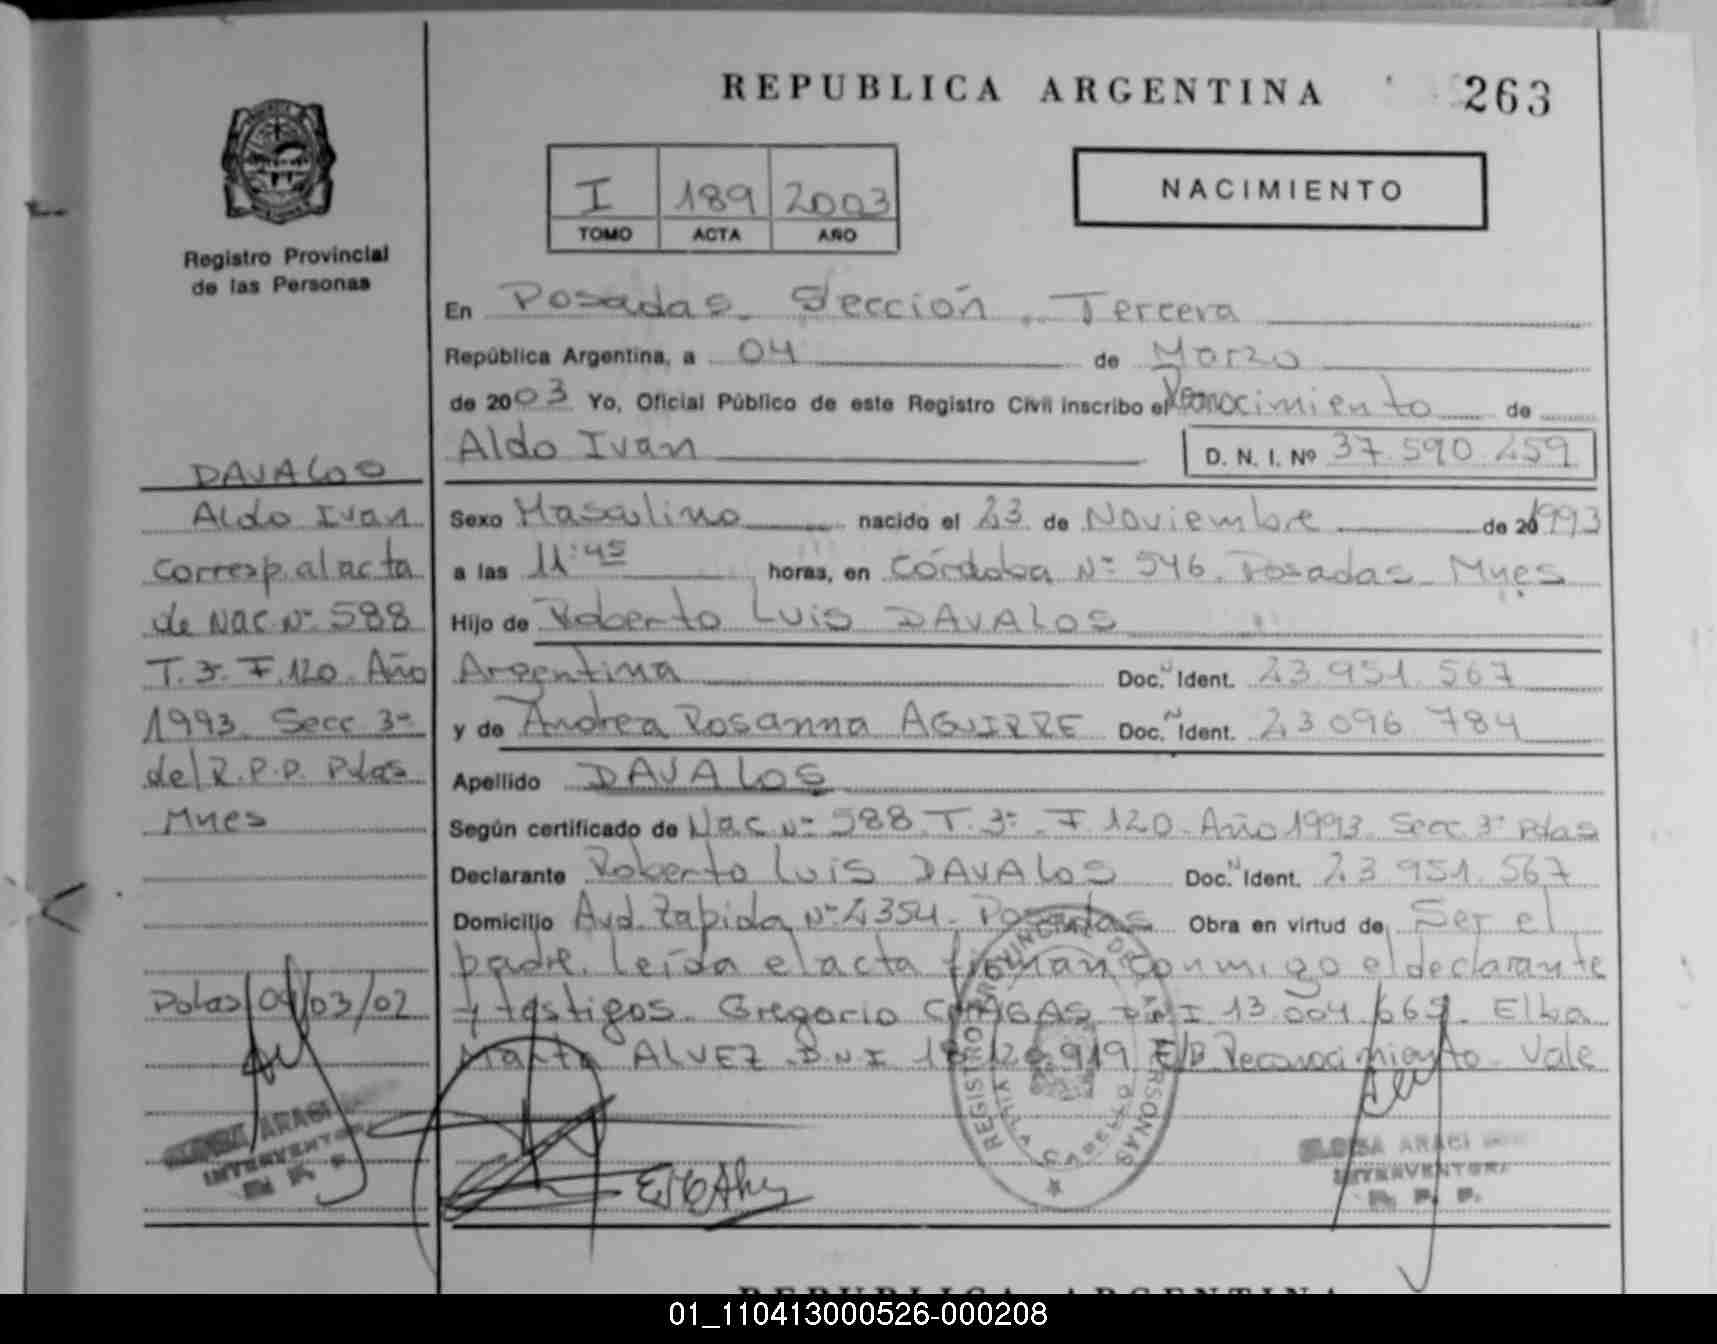 REPUBLICA ARGENTINA 263
I 189 2003
TOMO ACTA AÑO
NACIMIENTO
Registro Provincial
de las Personas
En Posadas. Sección Tercera
República Argentina, a 04 de Marzo
de 2003 Yo, Oficial Público de este Registro Civil inscribo el Reconocimiento de
Aldo Ivan D. N. I. Nº 37.590.259
Sexo Masculino nacido el 23 de Noviembre de 20 1993
a las 11:45 horas, en Córdoba Nº 546. Posadas. Mnes
Hijo de Roberto Luis DAVALOS
Argentina Doc. N Ident. 23.951.567
y de Andrea Rosanna AGUIRRE Doc. N Ident. 23.096.784
Apellido DAVALOS
Según certificado de Nac Nº 588. T. 3º. F 120. Año 1993. Secc. 3º Pdas
Declarante Roberto Luis DAVALOS Doc. N Ident. 23.951.567
Domicilio Avd. Zapiola Nº 2354. Posadas Obra en virtud de Ser el
padre. leída el acta firman conmigo el declarante
y testigos. Gregorio DNI 13.004.669. Elba
ALVEZ D.N.I E/R Reconocimiento. Vale
DAVALOS
Aldo Ivan
Corresp. al acta
de Nac. Nº 588
T. 3º F. 120. Año
1993. Secc 3º
del R.P.P. Pdas
Mnes
Pdas 04/03/02
ARACI
INTERVENTORA
R. P. P.
REGISTRO PROVINCIAL DE LAS PERSONAS
ARACI
INTERVENTORA
R. P. P.
REPUBLICA ARGENTINA
01_110413000526-000208